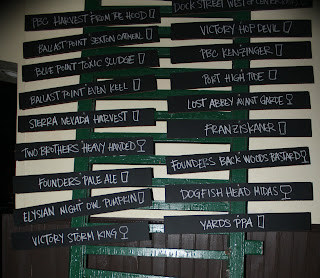 PBC HARVEST FROM THE HOOD
BALLAST POINT SEXTON OATMEAL
BLUE POINT TOXIC SLUDGE
BALLAST POINT EVEN KEEL
SIERRA NEVADA HARVEST
TWO BROTHERS HEAVY HANDED
FOUNDERS PALE ALE
ELYSIAN NIGHT OWL PUMPKIN
VICTORY STORM KING
DOCK STREET WEST OF CENTER
VICTORY HOP DEVIL
PBC KENZINGER
PORT HIGH TIDE
LOST ABBEY AVANT GARDE
FRANZISKANER
FOUNDERS BACK WOODS BASTARD
DOGFISH HEAD MIDAS
YARDS PPA